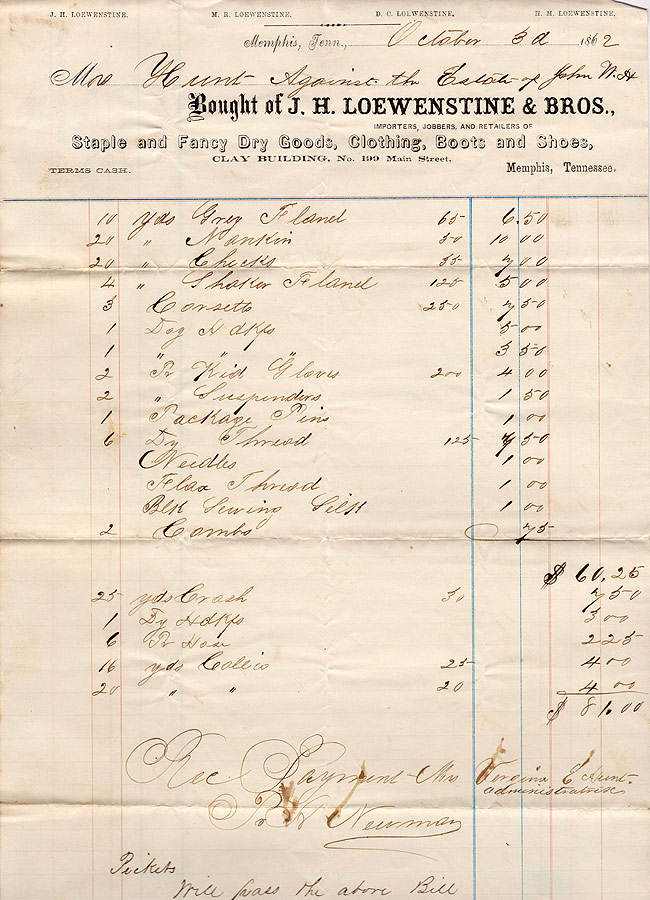 J. H. LOEWENSTINE. M. R. LOEWENSTINE. D. C. LOEWENSTINE. H. M. LOEWENSTINE.
Memphis, Tenn., October 3d 1862
Mrs Hunt Against the Estate of John W. H
Bought of J. H. LOEWENSTINE & BROS.,
IMPORTERS, JOBBERS, AND RETAILERS OF
Staple and Fancy Dry Goods, Clothing, Boots and Shoes,
CLAY BUILDING, No. 199 Main Street,
TERMS CASH. Memphis, Tennessee.
10 yds Grey Flanel 65 6.50
20 " Nankin 50 10 00
20 " Checks 35 7 00
4 " Shaker Flanel 125 5 00
3 Corsetts 250 7 50
1 Doz Hdkfs 5 00
1 " " 3 50
2 Pr Kid Gloves 200 4 00
2 " Suspenders 1 50
1 Package Pins 1 00
6 Dz Thread 125 7 50
Needles 1 00
Flax Thread 1 00
Blk Sewing Silk 1 00
2 Combs 75
$ 60,25
25 yds Crash 30 7 50
1 Dz Hdkfs 3 00
6 Pr Hose 2 25
16 yds Collico 25 4 00
20 " " 20 4 00
$ 81.00
Rec Payment Mrs Virginia E Hunt
administratrix
Pr H Newman
Pickets
Will pass the above Bill